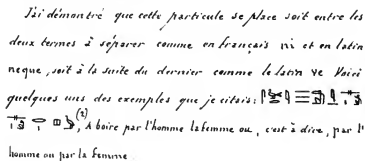 J'ai démontré que cette particule se place soit entre les
deux termes à séparer comme en français ni et en latin
neque, soit à la suite du dernier comme le latin ve Voici
quelques uns des exemples que je citais:
(2), A boire par l'homme la femme ou, c'est à dire, par l'
homme ou par la femme